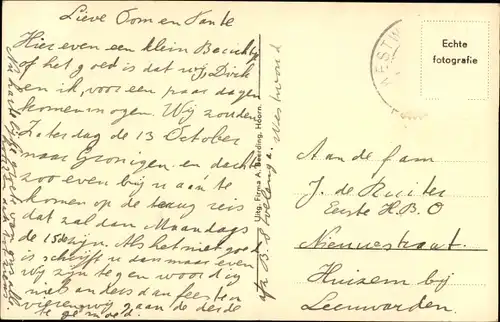 Lieve Oom en Tante
Hier even een klein Berichtje
of het goed is dat wij, Dirk
en ik, voor een paar dagen
komen mogen. Wij zouden
Zaterdag de 13 October
naar Groningen en dachten
zoo even bij u aan te
komen op de terug reis
dat zal dan Maandags
de 15de zijn. Als het niet goed
is schrijft u dan maar even
wij zijn tegenwoordig
niet anders dan feesten
vieren wij gaan de derde
te gemoed.
Uitg. Firma A. Beerding, Hoorn.
Westwoud
WESTW
Echte
fotografie
Aan de fam
J. de Ruiter
Eerste H.B.O
Nieuwestraat
Huizem bij
Leeuwarden.